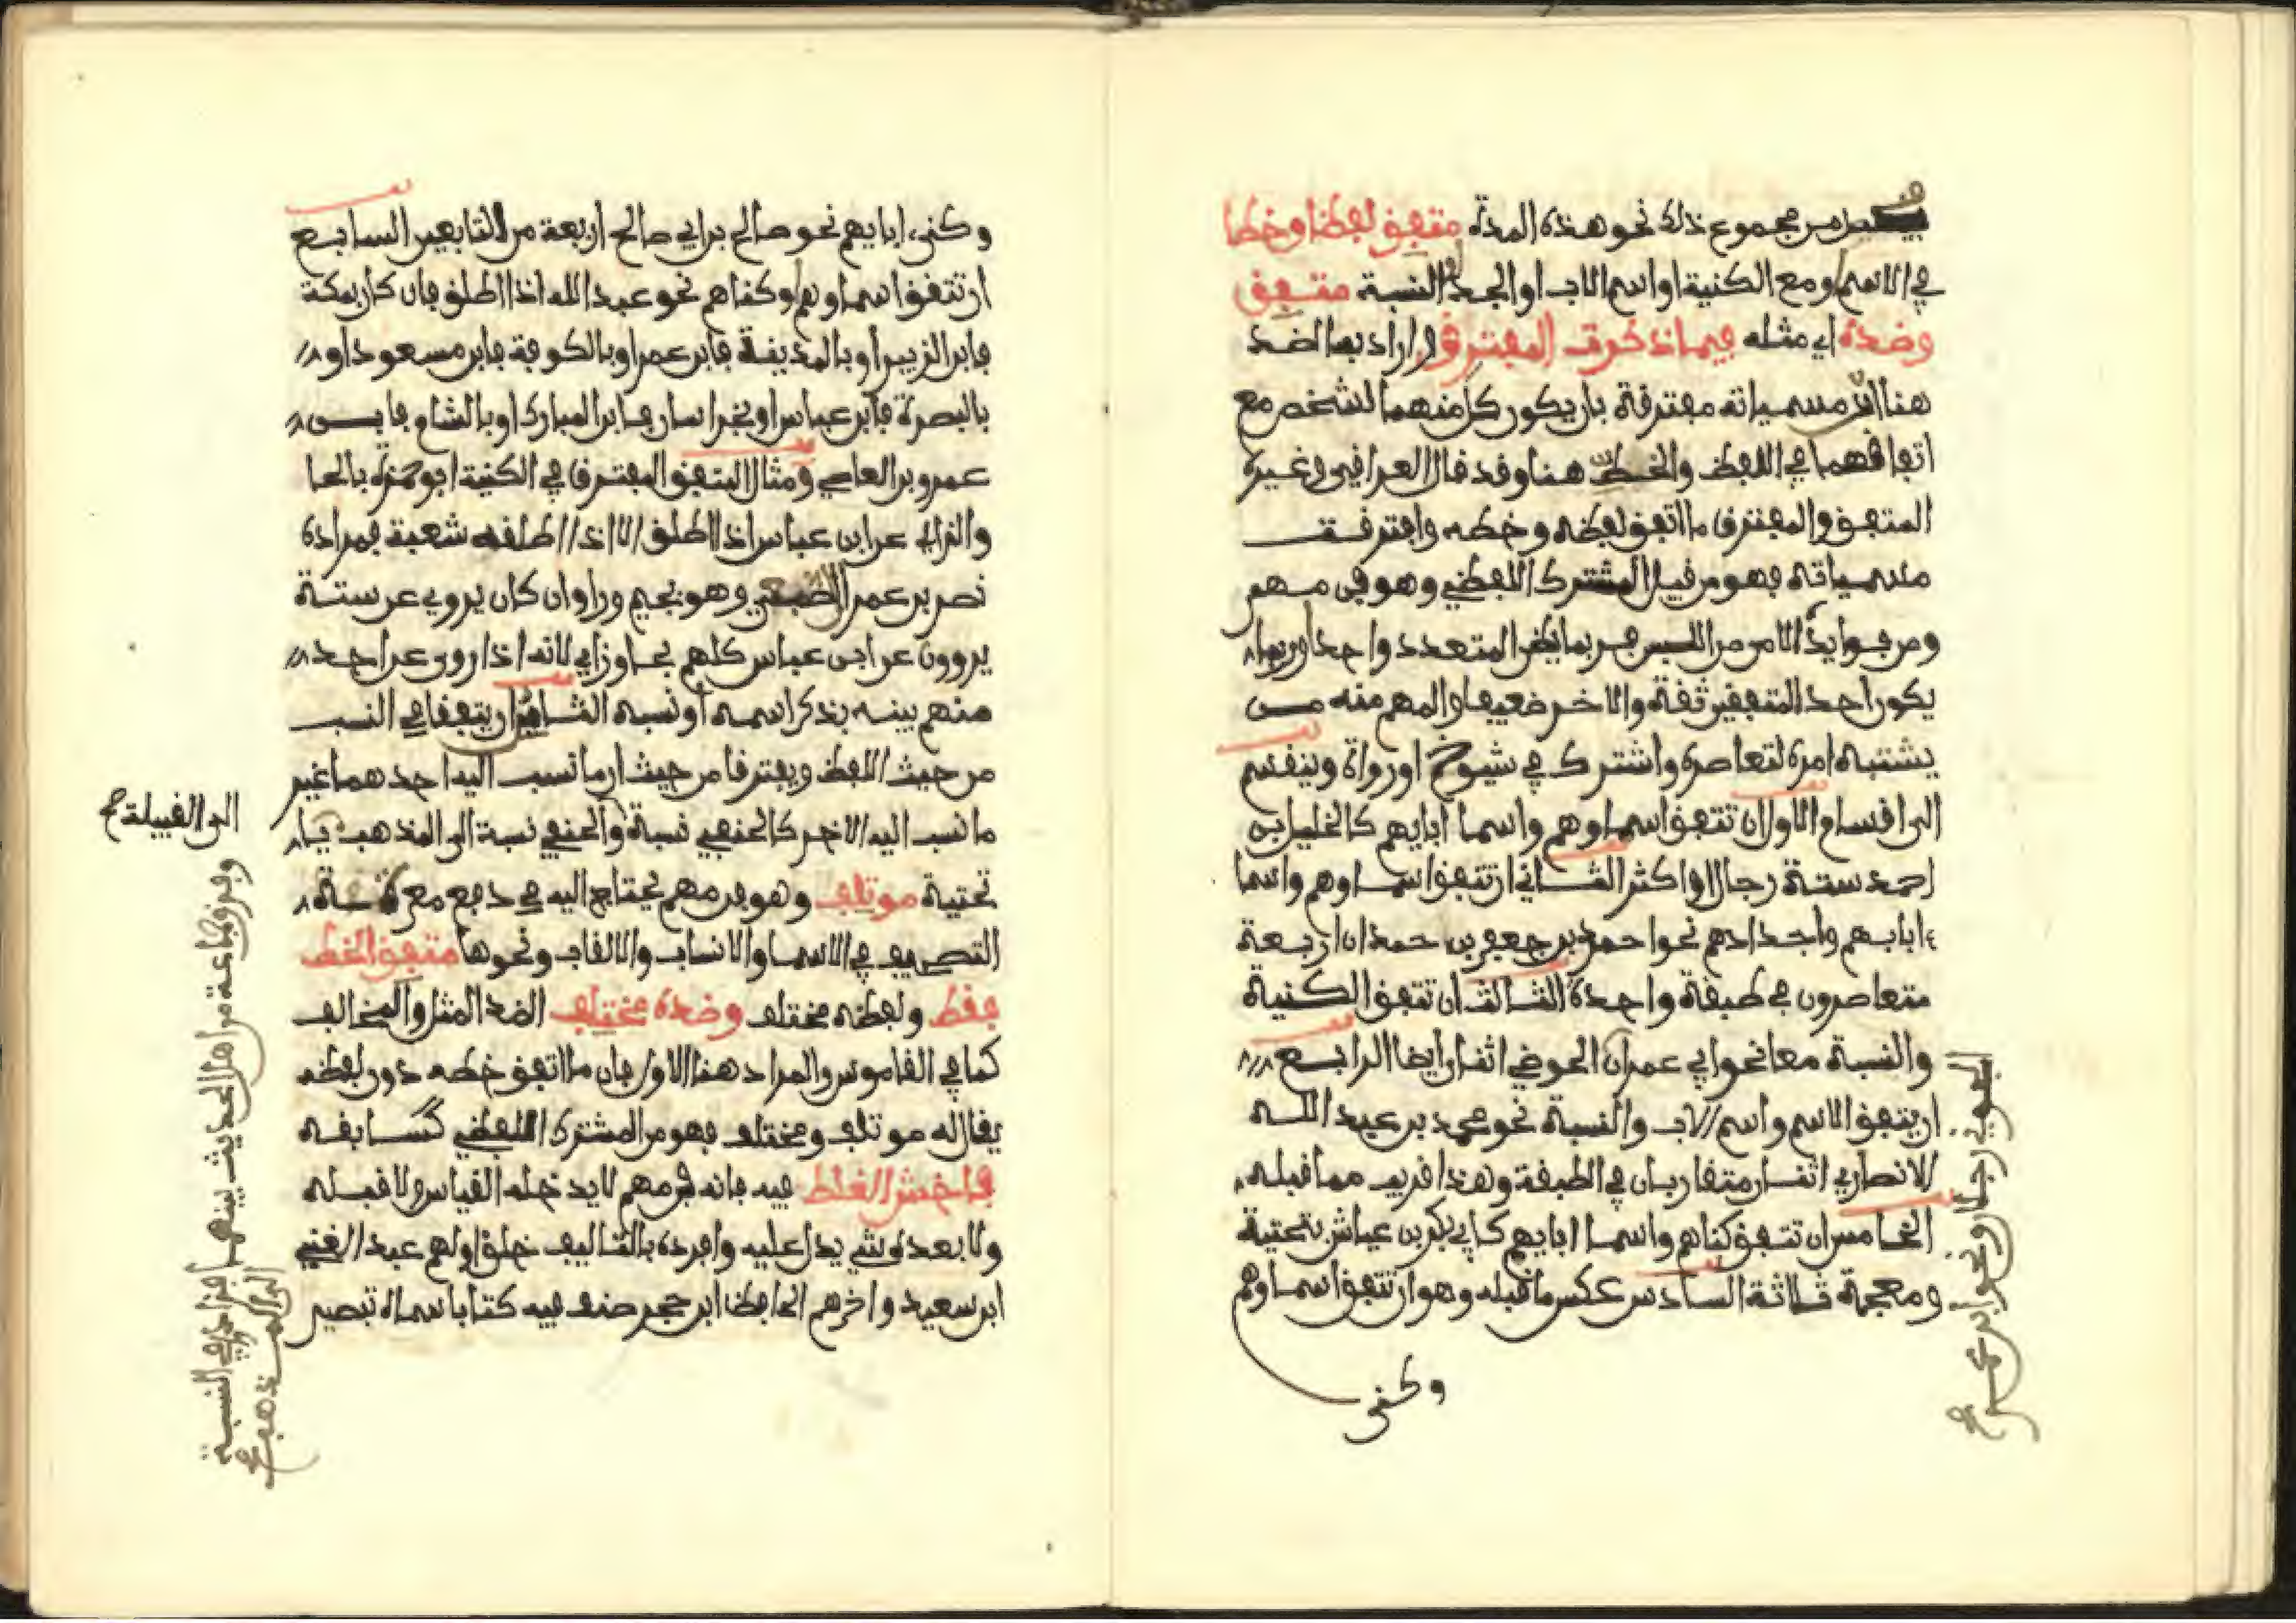 من مجموع ذلك نحو هذه المدة متفق لفظا وخطا
في الاسم ومع الكنية او اسم الاب او الجد او النسبة متفق
وضده اي مثله فيما ذكرت المفترق واراد بالضد
هنا ان مسمياته مفترقة بان يكون كل منهما لشخص مع
اتفاقهما في اللفظ والخط هنا وقد قال العراقي وغيره
المتفق والمفترق ما اتفق لفظه وخطه وافترقت
مسمياته فهو من قبيل المشترك اللفظي وهو فن مهم
ومن فوايده الامن من اللبس فربما يظن المتعدد واحدا وربما
يكون احد المتفقين ثقة والاخر ضعيفا والمهم منه من
يشتبه امره لتعاصره واشترك في شيوخ او رواة وينقسم
الى اقسام الاول ان تتفق اسماوهم واسما ابايهم كالخليل بن
احمد ستة رجال او اكثر الثاني ان تتفق اسماوهم واسما
ابايهم واجدادهم نحو احمد بن جعفر بن حمدان اربعة
متعاصرون في طبقة واحدة الثالث ان تتفق الكنية
والنسبة معا نحو ابي عمران الجوني اثنان ايضا الرابع
ان يتفق الاسم واسم الاب والنسبة نحو محمد بن عبد الله
الانصاري اثنان متقاربان في الطبقة وهذا قريب مما قبله
الخامس ان تتفق كناهم واسما ابايهم كابي بكر بن عياش بتحتية
ومعجمة ثلاثة السادس عكس ما قبله وهو ان تتفق اسماوهم
وكنى
وكنى ابايهم نحو صالح بن ابي صالح اربعة من التابعين السابع
ان تتفق اسماوهم او كناهم نحو عبد الله اذا اطلق فان كان بمكة
فابن الزبير او بالمدينة فابن عمر او بالكوفة فابن مسعود او
بالبصرة فابن عباس او بخراسان فابن المبارك او بالشام فابن
عمرو بن العاصي ومثال المتفق المفترق في الكنية ابو حمزة بالحا
والزاي عن ابن عباس اذا اطلق الا اذا اطلقه شعبة فمراده
نصر بن عمران الضبعي وهو بجيم ورا وان كان يروي عن ستة
يروون عن ابن عباس كلهم بحا وزاي لانه اذا روى عن احد
منهم بينه بذكر اسمه او نسبه الثامن ان يتفقا في النسب
من حيث اللفظ ويفترقا من حيث ان ما نسب اليه احدهما غير
ما نسب اليه الاخر كالحنفي نسبة والحنفي نسبة الى المذهب
الى القبيلة صح
وفرق جماعة من اهل الحديث بينهما فزادوا في النسبة
تحتية موتلف وهو فن مهم يحتاج اليه في دفع معرة
التصحيف في الاسما والانساب والالقاب ونحوها متفق الخط
فقط ولفظه مختلف وضده مختلف الضد المثل والمخالف
كما في القاموس والمراد هنا الاول فان ما اتفق خطه دون لفظه
يقال له موتلف ومختلف فهو من المشترك اللفظي كسابقه
فاخش الغلط فيه فانه فن مهم لا يدخله القياس ولا قبله
ولا بعده شي يدل عليه وافرده بالتاليف خلق اولهم عبد الغني
ابن سعيد واخرهم الحافظ ابن حجر صنف فيه كتابا سماه تبصير